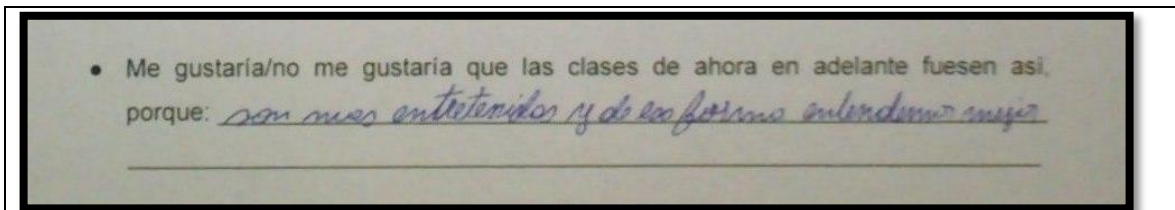 • Me gustaría/no me gustaría que las clases de ahora en adelante fuesen asi,
porque: son mas entretenidas y de esa forma entendemos mejor